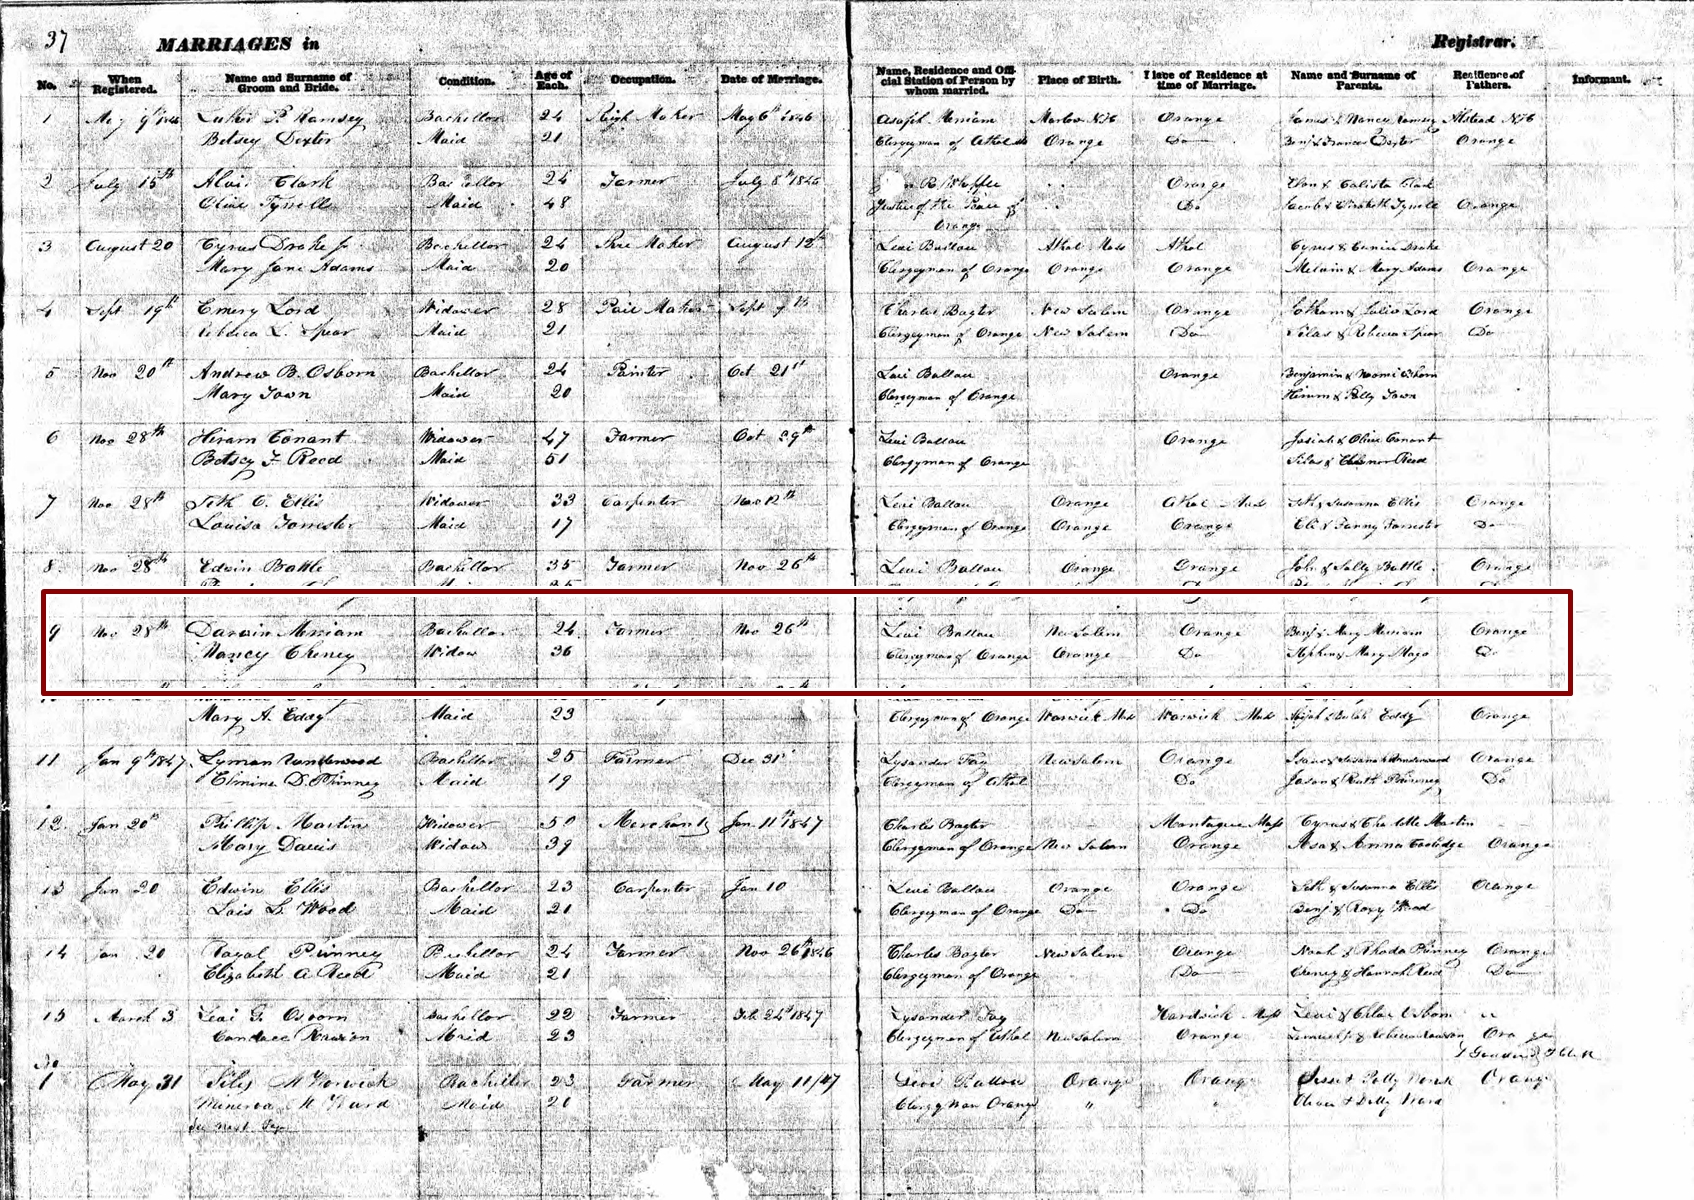 37 MARRIAGES in Registrar.
No. When Registered. Name and Surname of Groom and Bride. Condition. Age of Each. Occupation. Date of Marriage. Name, Residence and Official Station of Person by whom married. Place of Birth. Place of Residence at time of Marriage. Name and Surname of Parents. Residence of Fathers. Informant.
1 May 9th 1846 Luther P Ramsey Bachellor 24 Sleigh Maker May 6th 1846 Asaph Merriam Marlow NH Orange James & Nancy Ramsey Alstead NH
Betsey Dexter Maid 21 Clergyman of Athol Orange Do Benj & Frances Dexter Orange
2 July 15th Alvin Clark Bachellor 24 Farmer July 8th 1846 Orange & Calista Clark
Olive Tyrell Maid 48 Justice of the Peace of Do Jacob & Elizabeth Tyrell Orange
Orange
3 August 20 Cyrus Drake Jr Bachellor 24 Shoe Maker August 12th Levi Ballou Athol Mass Athol Cyrus & Eunice Drake
Mary Jane Adams Maid 20 Clergyman of Orange Orange Orange Melvin & Mary Adams Orange
4 Sept 19th Emery Lord Widower 28 Pail Maker Sept 7th Charles Baxter New Salem Orange Lord Orange
Rebecca L. Spear Maid 21 Clergyman of Orange New Salem Do Silas & Rebecca Spear Do
5 Nov 20th Andrew B. Osborn Bachellor 24 Painter Oct 21st Levi Ballou Orange Benjamin & Naomi Osborn
Mary Town Maid 20 Clergyman of Orange Hiram & Polly Town
6 Nov 28th Hiram Conant Widower 47 Farmer Oct 29th Levi Ballou Orange Josiah & Olive Conant
Betsey F Reed Maid 51 Clergyman of Orange Silas & Eleanor Reed
7 Nov 28th Seth C. Ellis Widower 33 Carpenter Nov 12th Levi Ballou Orange Athol Mass Seth & Susanna Ellis Orange
Louisa Forrester Maid 17 Clergyman of Orange Orange Orange Eli & Fanny Forrester Do
8 Nov 28th Edwin Battle Bachellor 35 Farmer Nov 26th Levi Ballou Orange Orange John & Sally Battle Orange
9 Nov 28th Darwin Merriam Bachellor 24 Farmer Nov 26th Levi Ballou New Salem Orange Benj & Mary Merriam Orange
Nancy Cheney Widow 36 Clergyman of Orange Orange Do Stephen & Mary Mayo Do
Mary A. Eddy Maid 23 Clergyman of Orange Warwick Mass Warwick Mass Abijah & Bulah Eddy Orange
11 Jan 9th 1847 Lyman Underwood Bachellor 25 Farmer Dec 31st Lysander Fay New Salem Orange Isaac & Susanah Underwood Orange
Elmina D. Phinney Maid 19 Clergyman of Athol Do Jason & Ruth Phinney Do
12 Jan 20th Phillip Martin Widower 50 Merchant Jan 11th 1847 Charles Baxter Montague Mass Cyrus & Charlotte Martin
Mary Davis Widow 39 Clergyman of Orange New Salem Orange Asa & Anna Coolidge Orange
13 Jan 20 Edwin Ellis Bachellor 23 Carpenter Jan 10 Levi Ballou Orange Orange Seth & Susanna Ellis Orange
Lois B. Wood Maid 21 Clergyman of Orange Do Do Benj & Roxy Wood
14 Jan 20 Royal Phinney Bachellor 24 Farmer Nov 26th 1846 Charles Baxter New Salem Orange Noah & Rhoda Phinney Orange
Elizabeth A Reed Maid 21 Clergyman of Orange Do Cheney & Hannah Reed Do
15 March 3 Levi G. Osborn Bachellor 22 Farmer Feb 24th 1847 Lysander Fay Hardwick Mass Levi & Chloe Osborn
Candace Rawson Maid 23 Clergyman of Athol New Salem Orange Lemuel & Rebecca Rawson Orange
1 May 31 Bacheller 23 Farmer May 11/47 Levi Ballou Orange Orange Orange
Minerva M Ward Maid 20 Clergyman Orange " " Oliver & Dolly Ward
See next Page